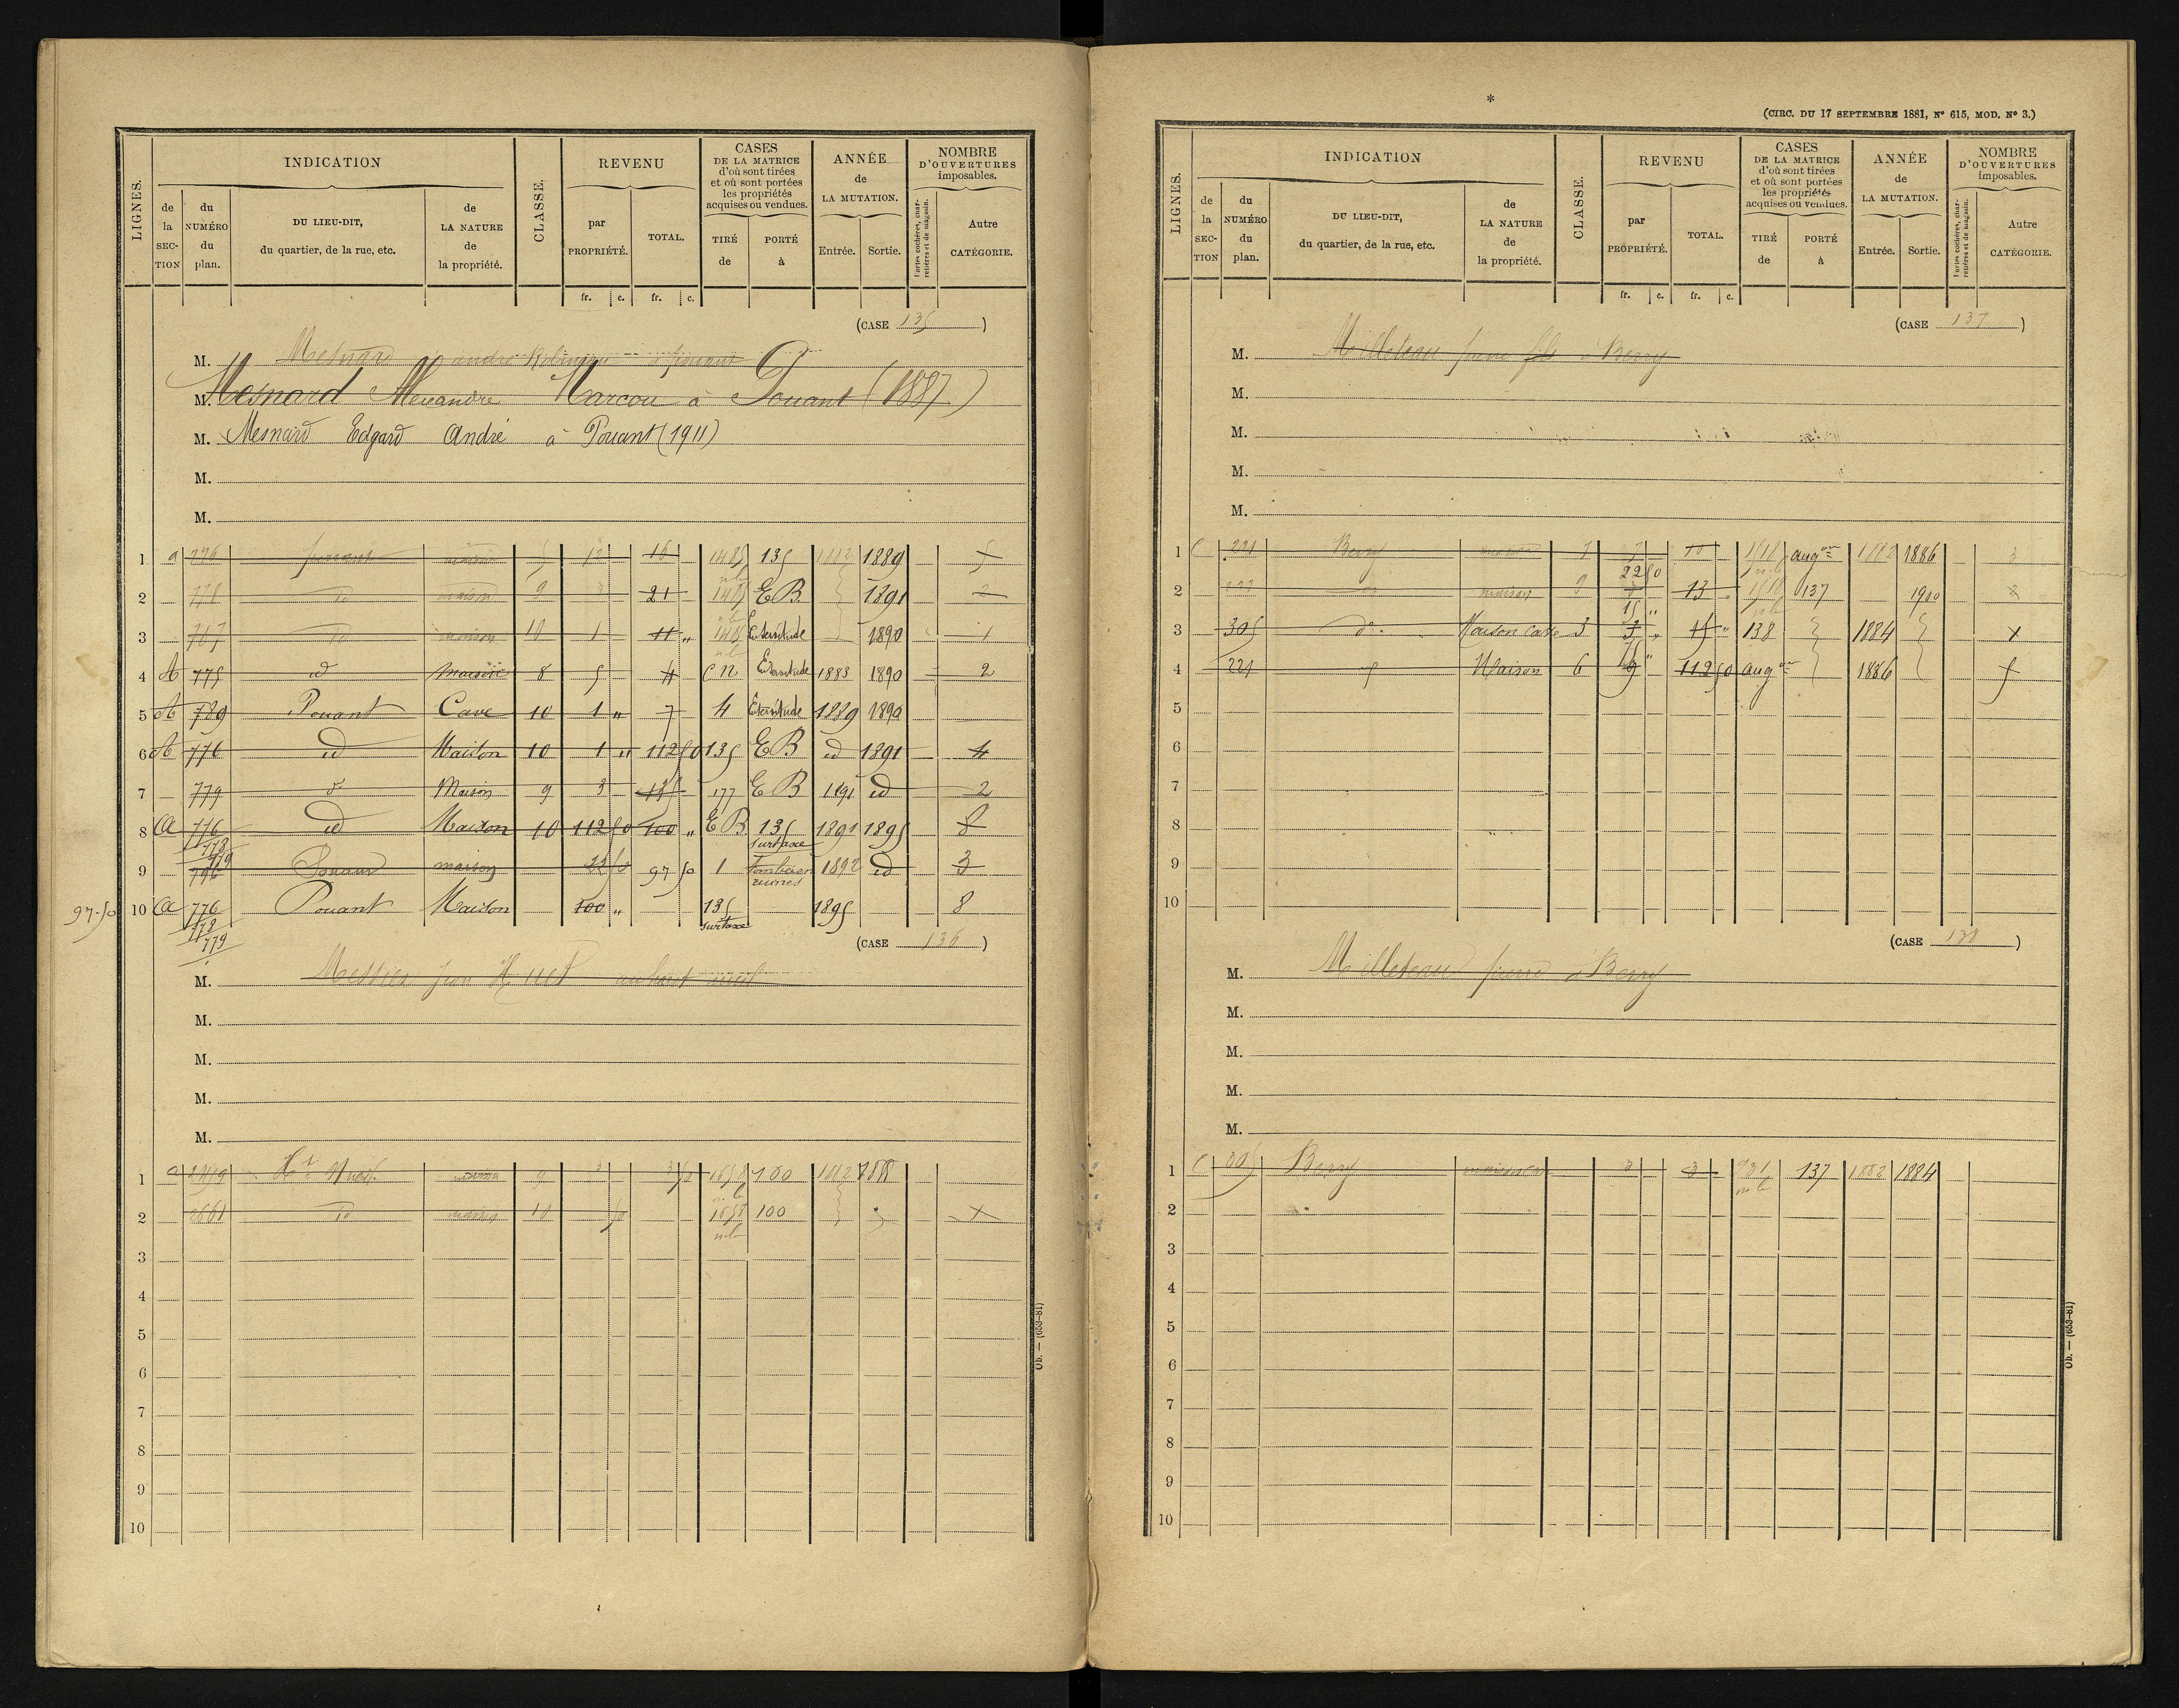 LIGNES.
INDICATION
de la SECTION
du NUMÉRO du plan.
DU LIEU-DIT, du quartier, de la rue, etc.
de LA NATURE de la propriété.
CLASSE.
REVENU
par PROPRIÉTÉ.
TOTAL.
CASES DE LA MATRICE d'où sont tirées et où sont portées les propriétés acquises ou vendues.
TIRÉ de
PORTÉ à
ANNÉE de LA MUTATION.
Entrée.
Sortie.
NOMBRE D'OUVERTURES imposables.
Portes cochères, charretières et de magasin.
Autre CATÉGORIE.
fr. c. fr. c.
(CASE 135)
M. Mesnard andré à pouant
M. Mesnard Alexandre Marcou à Pouant (1887)
M. Mesnard Edgard André à Pouant (1911)
M.
M.
1 a 796 pouant maison 5 12 16 1485 135 1882 1889 5
2 778 id maison 9 3 21 1485 EB 1891 2
3 767 id maison 10 1 11 " 1485 1890 1
4 A 775 id maison 8 5 4 C n 1883 1890 2
5 A 789 Pouant Cave 10 1 " 7 4 1889 1890
6 A 776 id Maison 10 1 " 112 50 135 EB id 1891 4
7 779 d° Maison 9 3 135 177 EB 1891 id 2
8 A 776 778 779 id Maison 10 112 50 100 " EB 135 surtaxe 1891 1895 8
9 796 Pouant maison 22 50 97 50 1 Tombé en ruines 1892 id 3
97.50 10 A 776 778 779 Pouant Maison 100 " 135 surtaxe 1895 8
(CASE 136)
M. Messier jean Huet
M.
M.
M.
M.
1 a 2459 maison 9 3 3 50 1658 100 1882 1888
2 2661 id maison 10 50 1658 100 x
3
4
5
6
7
8
9
10
Ob. — (653-81)
*
(CIRC. DU 17 SEPTEMBRE 1881, N° 615, MOD. N° 3.)
LIGNES.
INDICATION
de la SECTION
du NUMÉRO du plan.
DU LIEU-DIT, du quartier, de la rue, etc.
de LA NATURE de la propriété.
CLASSE.
REVENU
par PROPRIÉTÉ.
TOTAL.
CASES DE LA MATRICE d'où sont tirées et où sont portées les propriétés acquises ou vendues.
TIRÉ de
PORTÉ à
ANNÉE de LA MUTATION.
Entrée.
Sortie.
NOMBRE D'OUVERTURES imposables.
Portes cochères, charretières et de magasin.
Autre CATÉGORIE.
fr. c. fr. c.
(CASE 137)
M. Milleteau pierre fils à Berry
M.
M.
M.
M.
1 C 221 Berry maison 7 7 10 1518 augon 1882 1886 3
2 maison 9 22 50 13 1518 137 1900
3 305 d° Maison Cave 3 15 " 3 15 " 138 1884 x
4 221 Maison 6 75 " 9 112 50 augon 1886 5
5
6
7
8
9
10
(CASE 138)
M. Milleteau pierre à Berry
M.
M.
M.
M.
1 C 305 Berry maison 3 3 931 137 1882 1884
2
3
4
5
6
7
8
9
10
Ob. — (653-81)